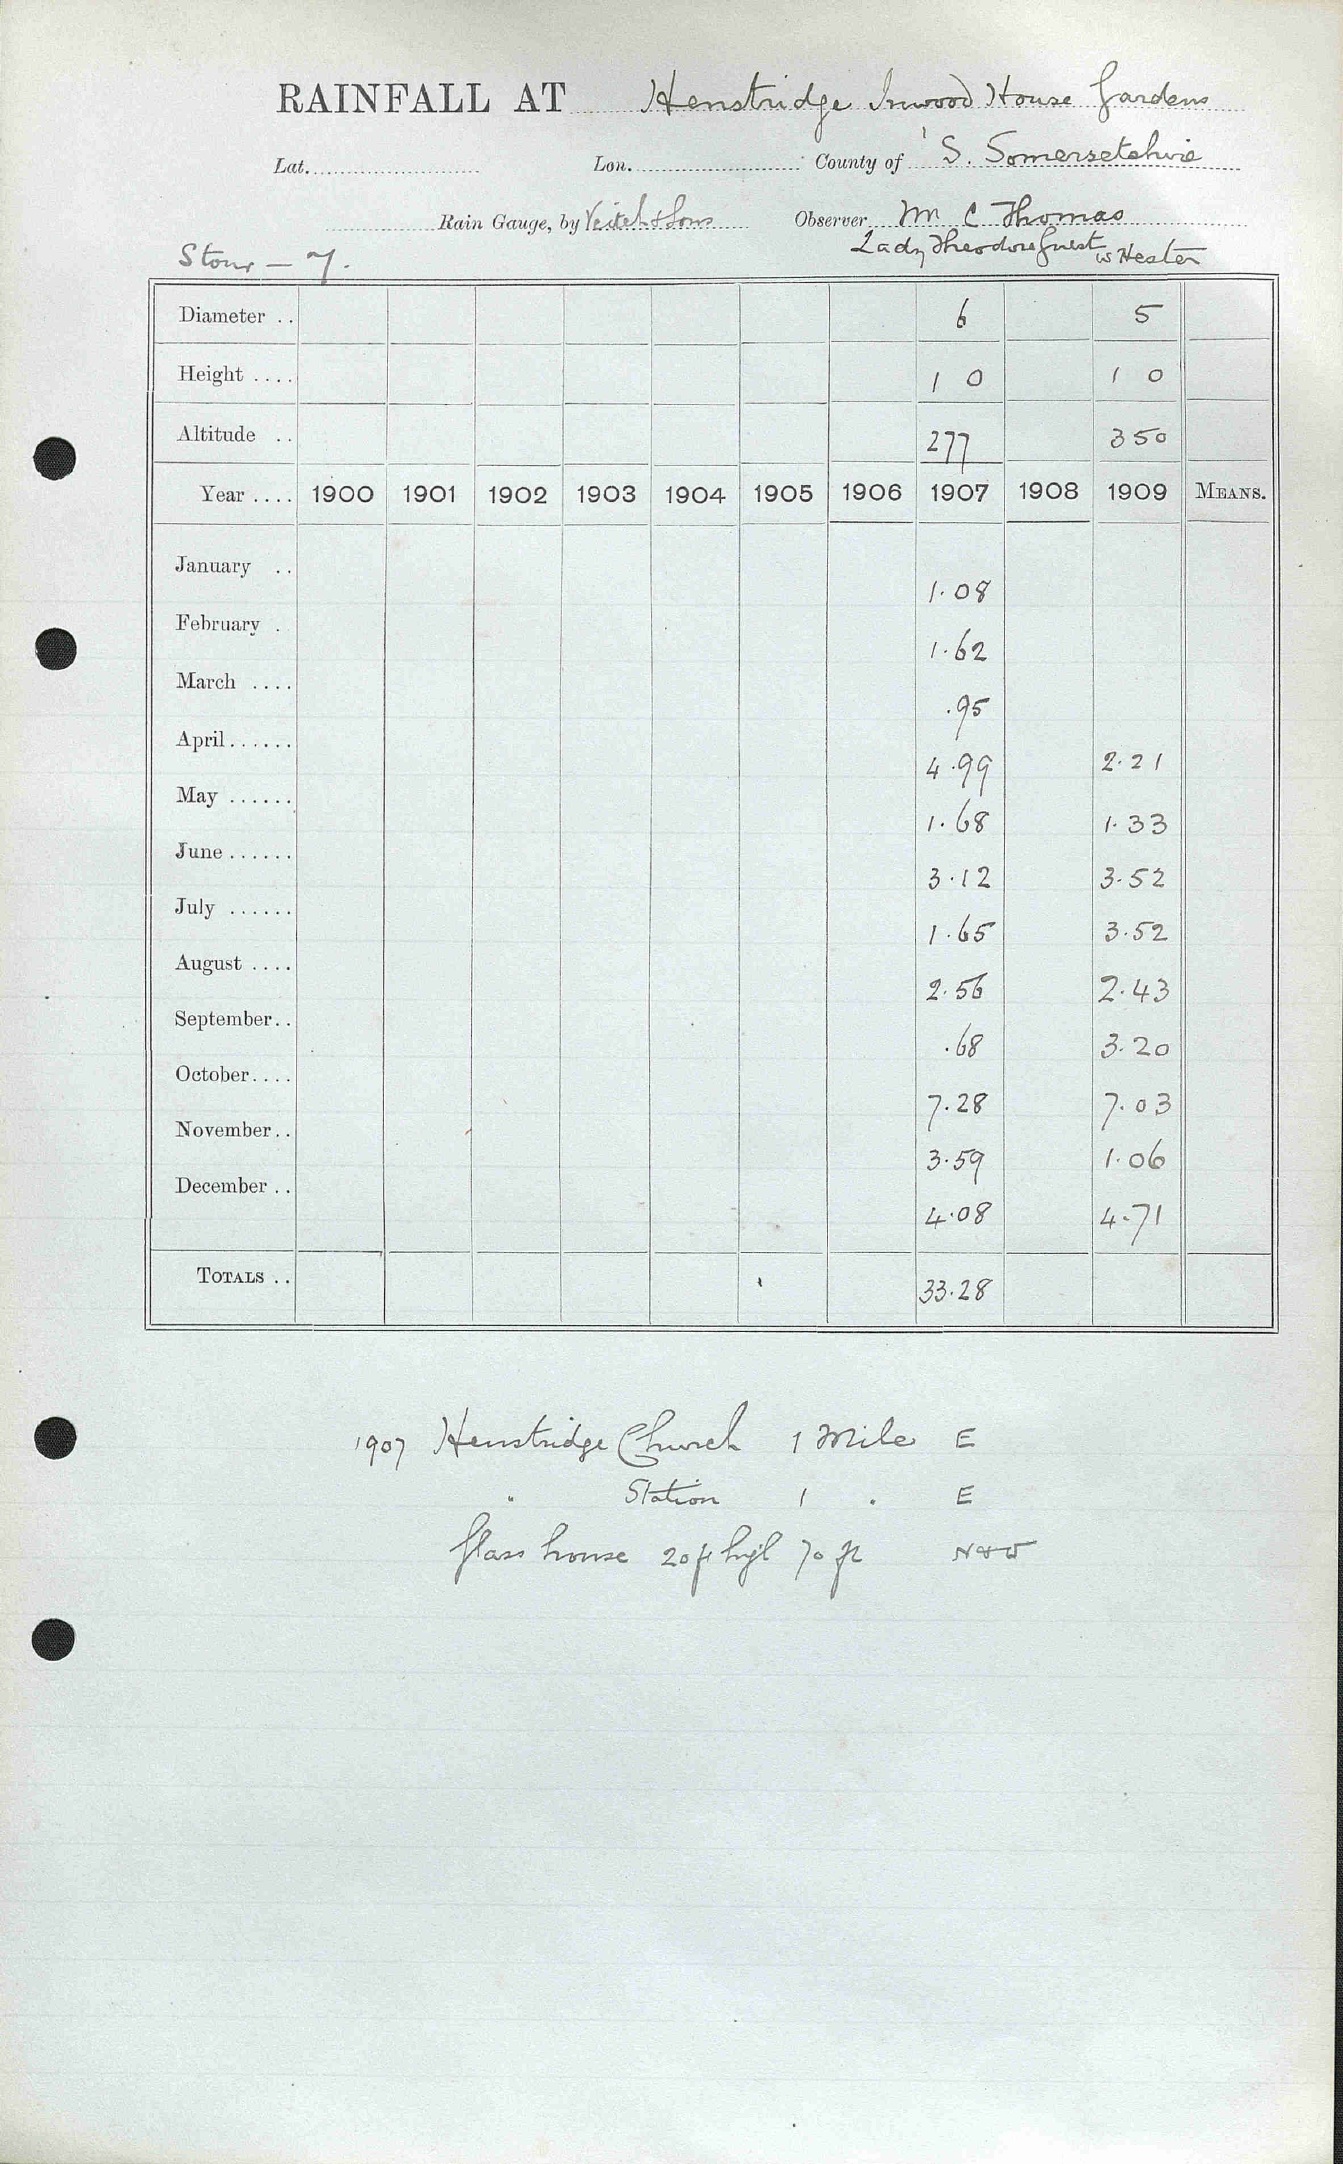 RAINFALL AT Henstridge Inwood House Gardens
Lat. Lon. County of S. Somersetshire
Rain Gauge, by Veitch & Sons Observer M C Thomas
Stour - 7. Lady Theodore Guest W Hester
Diameter .. 6 5
Height .... 1 0 1 0
Altitude .. 277 350
Year .... 1900 1901 1902 1903 1904 1905 1906 1907 1908 1909 MEANS.
January .. 1.08
February . 1.62
March .... .95
April...... 4.99 2.21
May ...... 1.68 1.33
June ...... 3.12 3.52
July ...... 1.65 3.52
August .... 2.56 2.43
September.. .68 3.20
October.... 7.28 7.03
November.. 3.59 1.06
December .. 4.08 4.71
TOTALS .. 33.28
1907 Henstridge Church 1 Mile E
" Station 1 " E
Glass house 20 ft high 70 ft